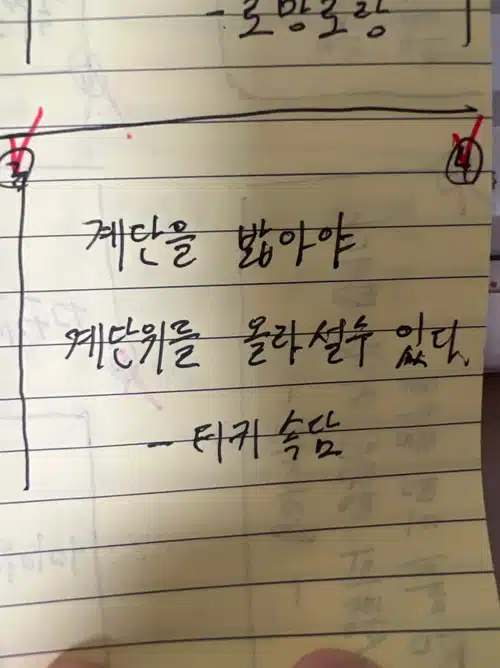 -로망로랑
3 4
계단을 밟아야
계단위를 올라설수 있다.
- 터키 속담